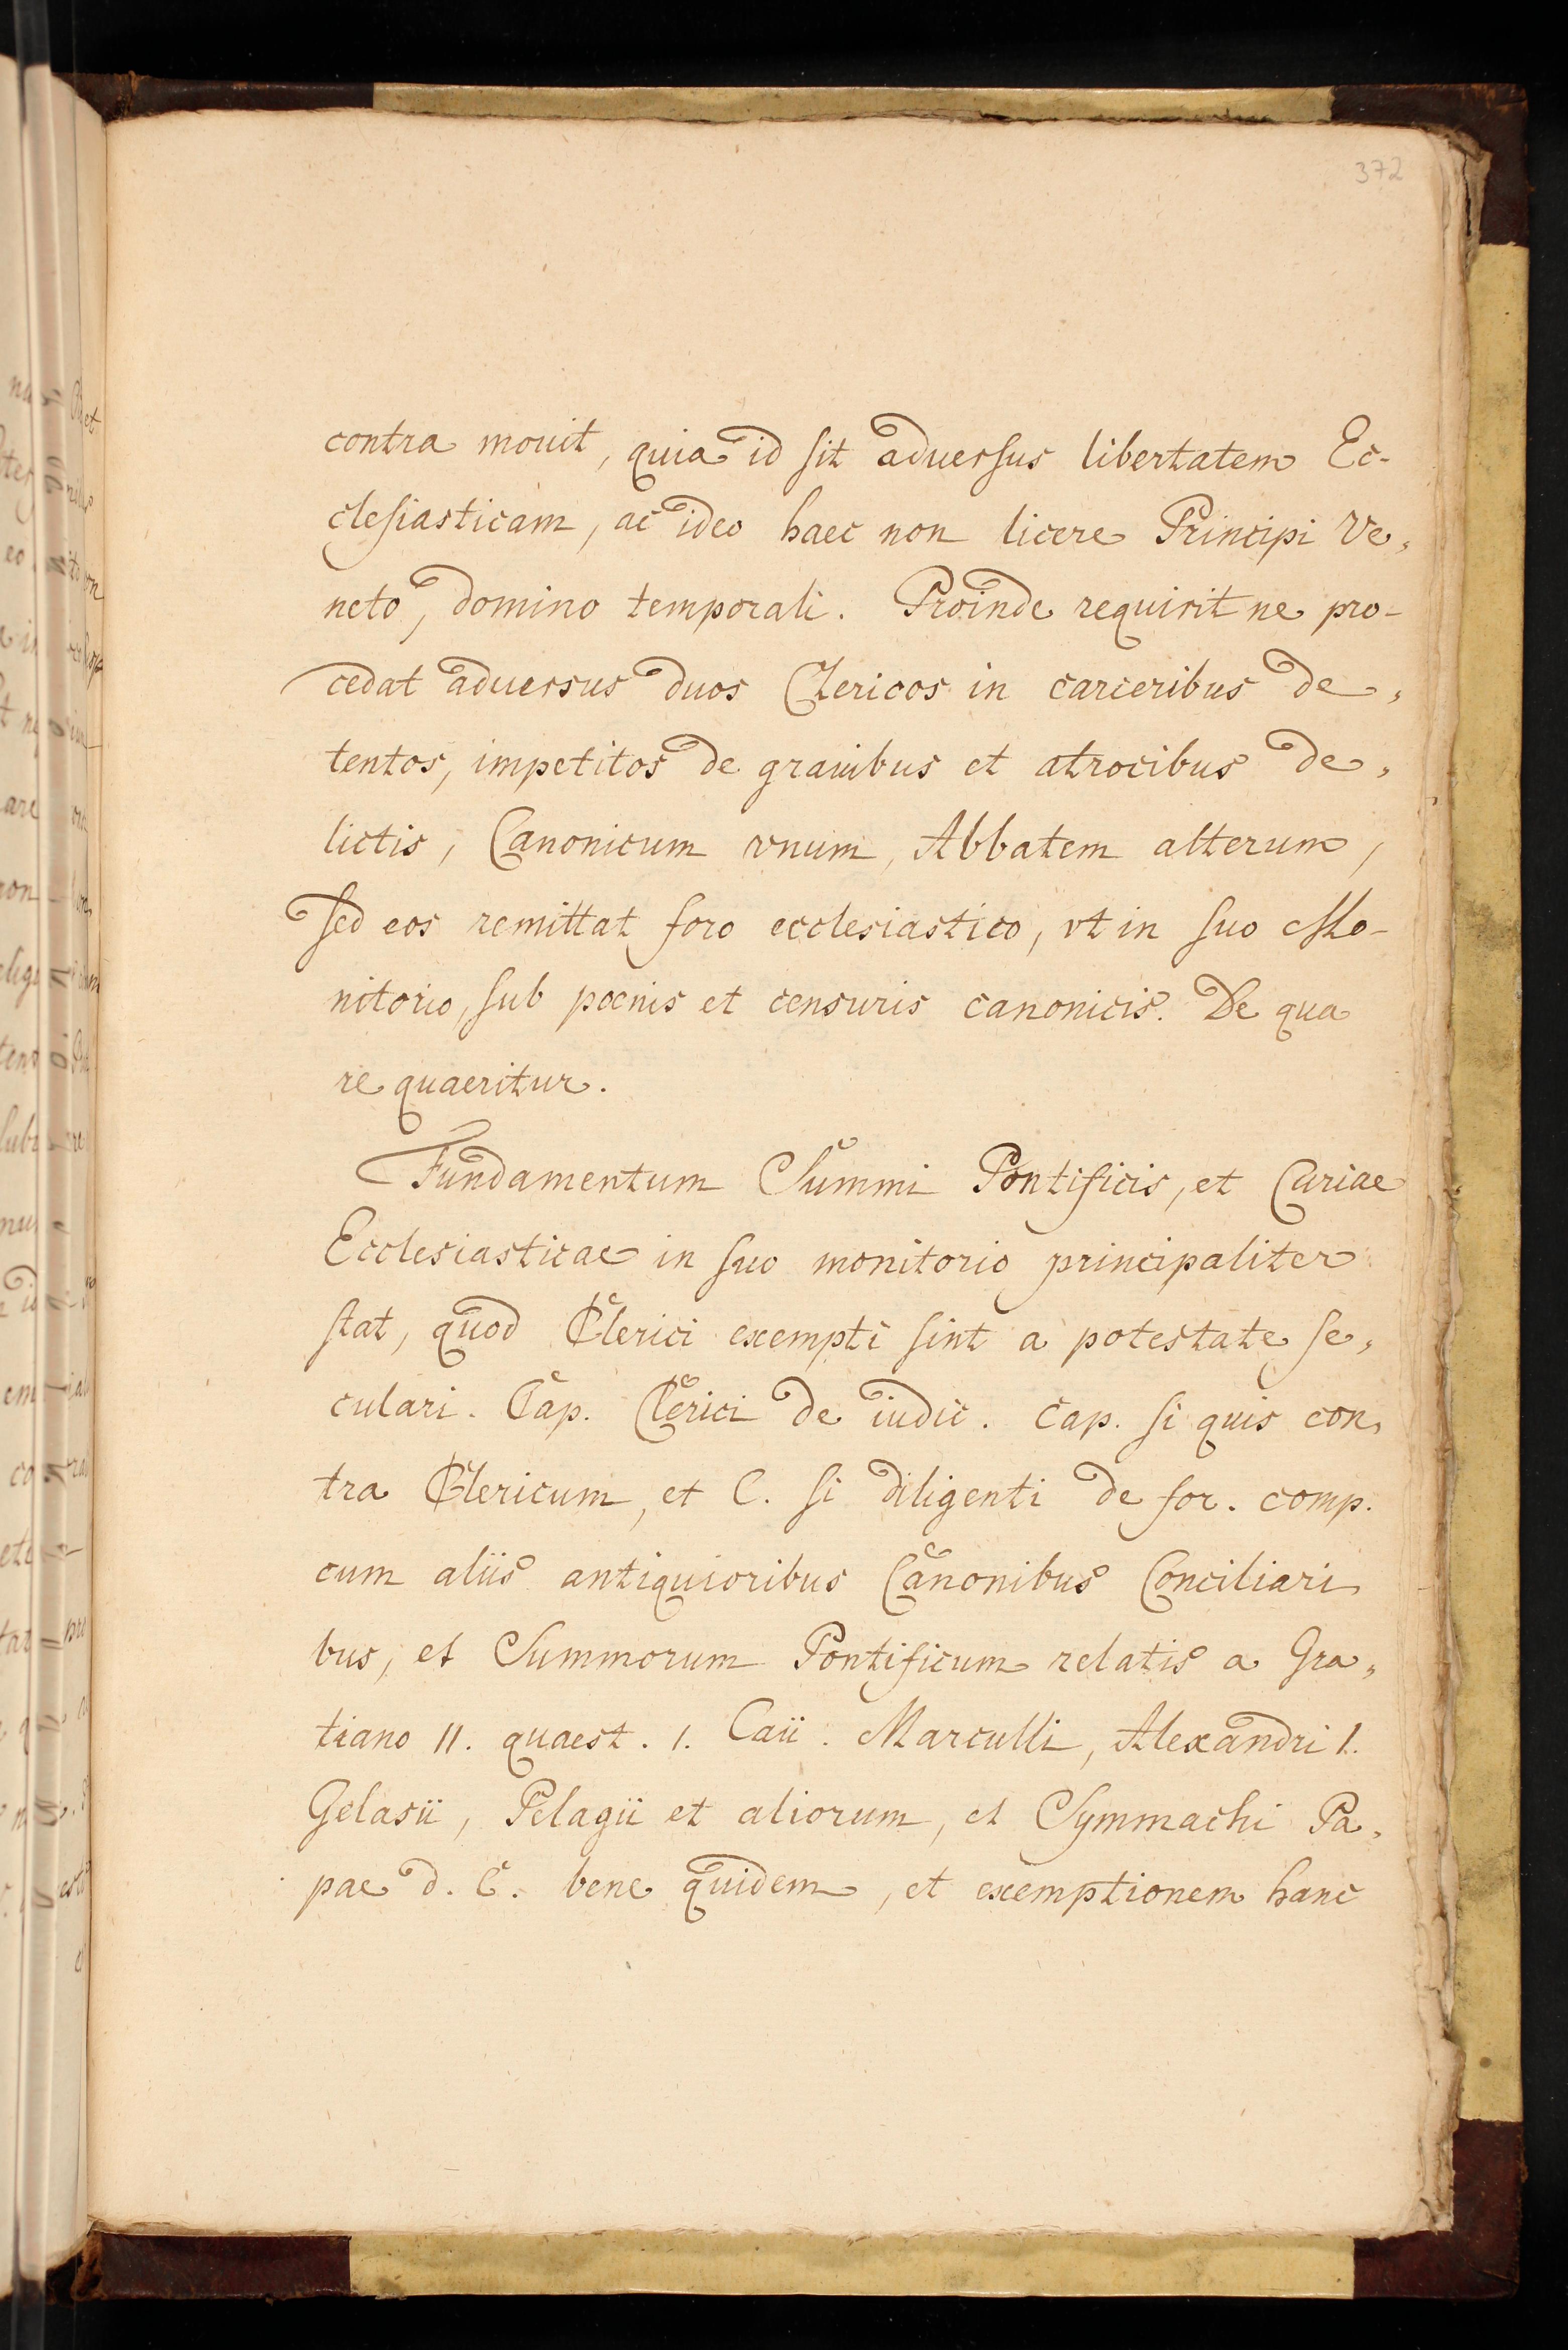 372
contra mouit, quia id sit aduersus libertatem Ec-
clesiasticam, ac ideo haec non licere Principi Ve,
neto, domino temporali. Proinde requirit ne pro-
cedat aduersus duos Clericos in carceribus de,
tentos, impetitos de grauibus et atrocibus de,
lictis, Canonicum vnum, Abbatem alterum,
sed eos remittat foro ecclesiastico, vt in suo Mo-
nitorio, sub poenis et censuris canonicis. De qua
re quaeritur.
Fundamentum Summi Pontificis, et Curiae
Ecclesiasticae in suo monitorio principaliter
stat, quod Clerici exempti sint a potestate se,
culari. Cap. Clerici de iudic. cap. si quis con,
tra Clericum, et C. si diligenti de for. comp.
cum aliis antiquioribus Canonibus Conciliari
bus, et Summorum Pontificum relatis a Gra,
tiano 11. quaest. 1. Caii. Marculli, Alexandri 1.
Gelasii, Pelagii et aliorum, et Symmachi Pa,
pae d. C. bene quidem, et exemptionem hanc